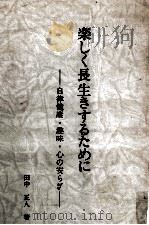 楽しく長生きするために
──自律健康・趣味・心の安らぎ──
田中 正人 著